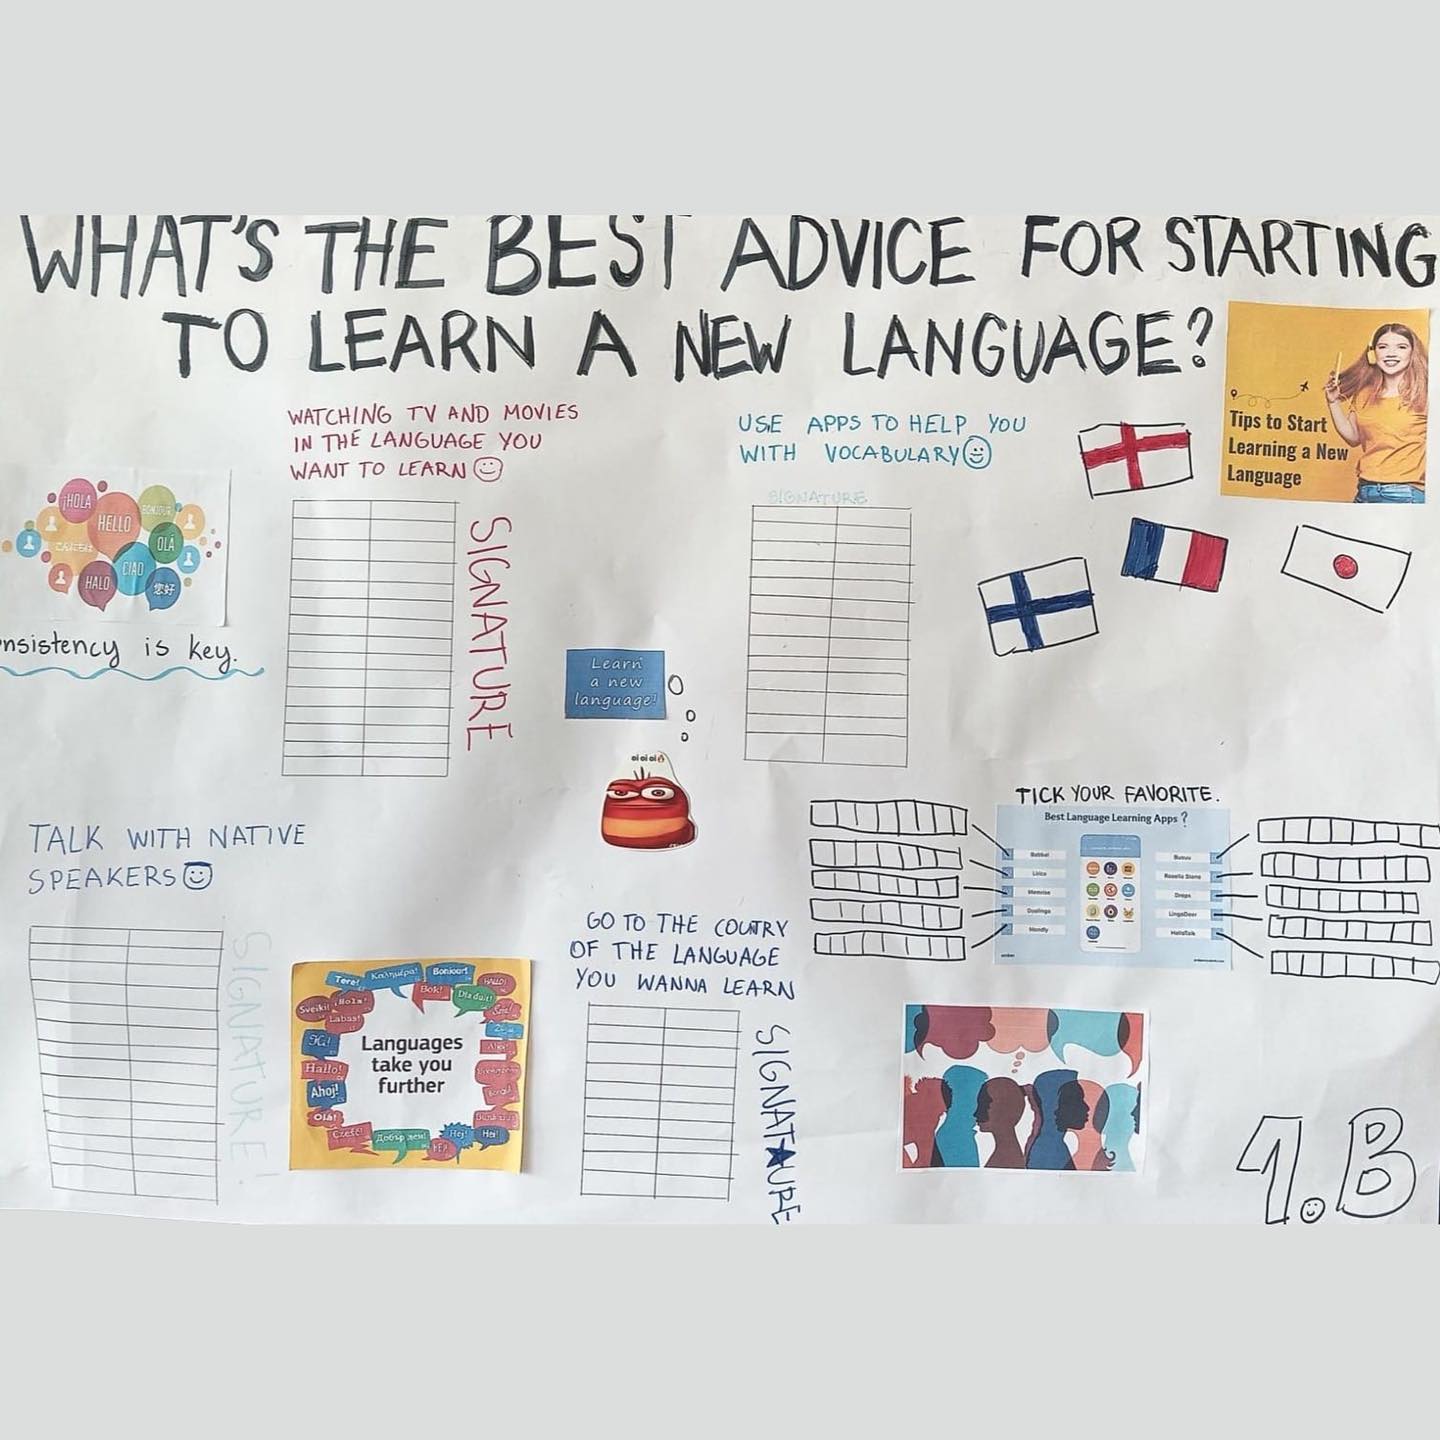 WHAT'S THE BEST ADVICE FOR STARTING
TO LEARN A NEW LANGUAGE?
Tips to Start
Learning a New
Language
WATCHING TV AND MOVIES
IN THE LANGUAGE YOU
WANT TO LEARN
SIGNATURE
USE APPS TO HELP YOU
WITH VOCABULARY
SIGNATURE
¡HOLA
HELLO
BONJOUR
こんにちは
OLÁ
CIAO
HALO
您好
nsistency is key.
Learn
a new
language!
oi oi oi
TICK YOUR FAVORITE.
Best Language Learning Apps ?
Babbel
Memrise
Duolingo
Mondly
Busuu
Rosetta Stone
Drops
LingoDeer
HelloTalk
TALK WITH NATIVE
SPEAKERS
SIGNATURE!
Tere!
Καλημέρα!
Bonjour!
Bok!
Dia duit!
Sveiki!
Labas!
Hallo!
Ahoj!
Olá!
Cześć!
Добър ден!
Hej!
Hei!
Languages
take you
further
GO TO THE COUNTRY
OF THE LANGUAGE
YOU WANNA LEARN
SIGNATURE
1.B